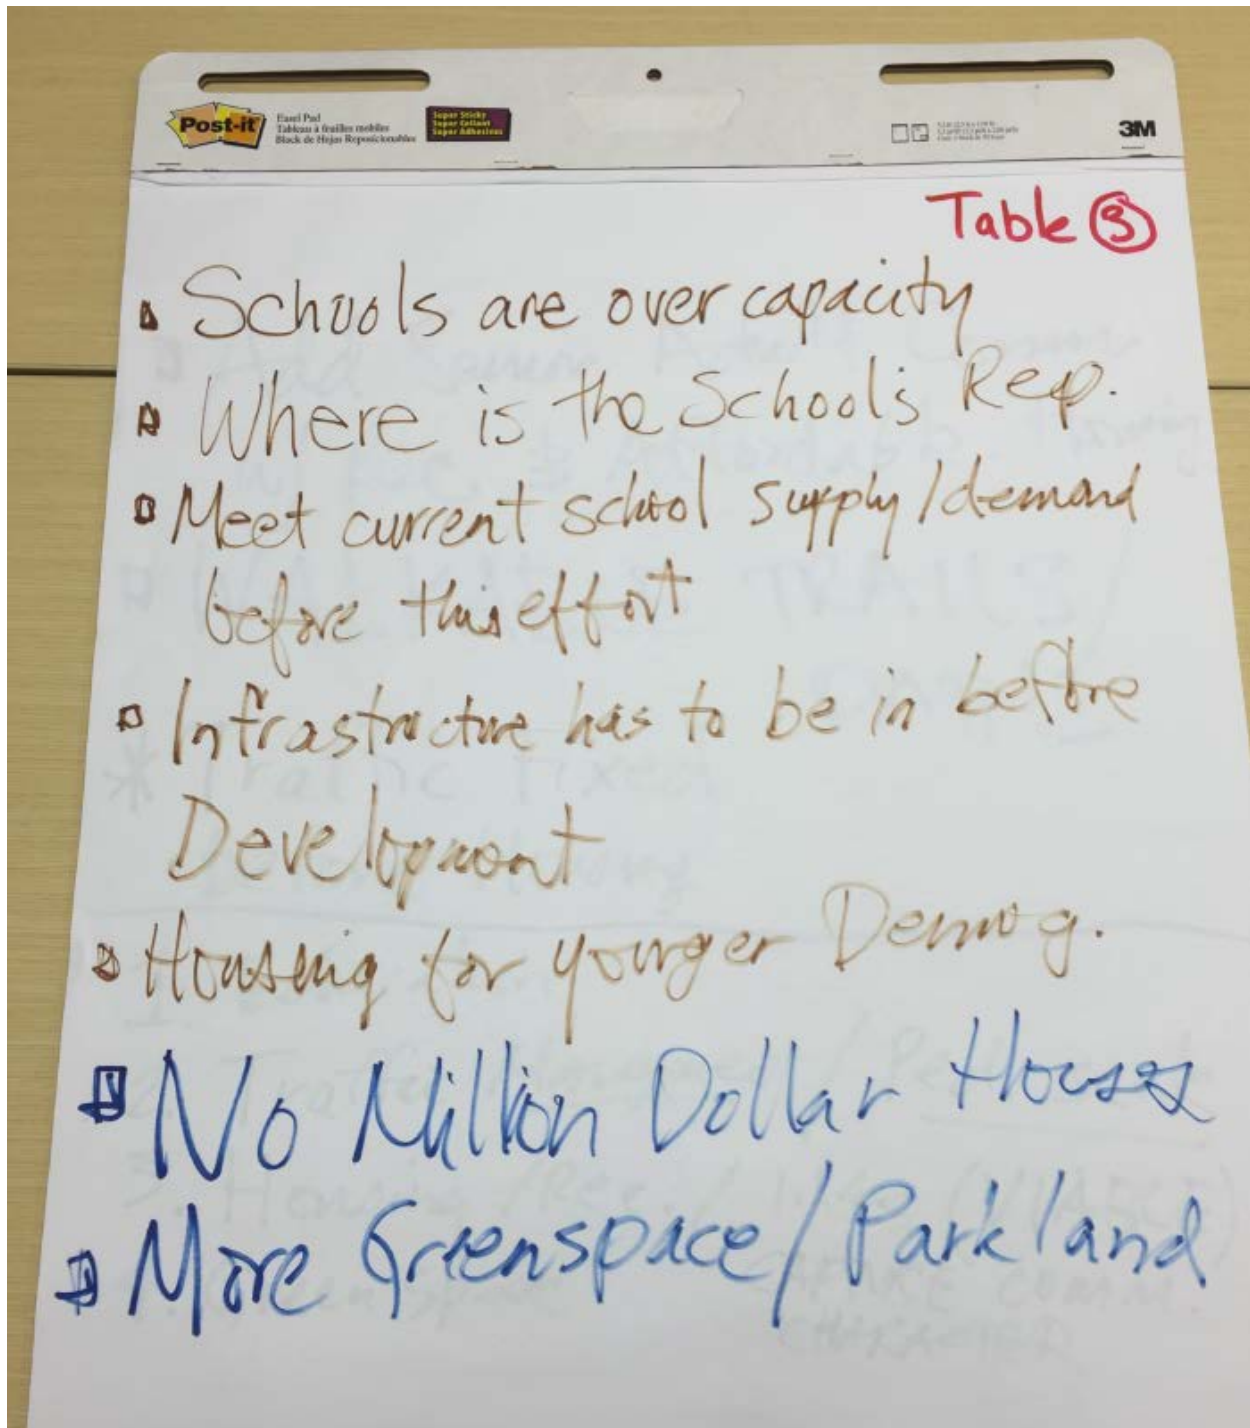 Post-it
Easel Pad
Tableau à feuilles mobiles
Block de Hojas Reposicionables
Super Sticky
Super Collant
Super Adhesivas
3M
Table 3
Schools are over capacity
Where is the School's Rep.
Meet current school supply/demand
before this effort
Infrastructure has to be in before
Development
Housing for younger Demog.
No Million Dollar Houses
More Greenspace/Parkland